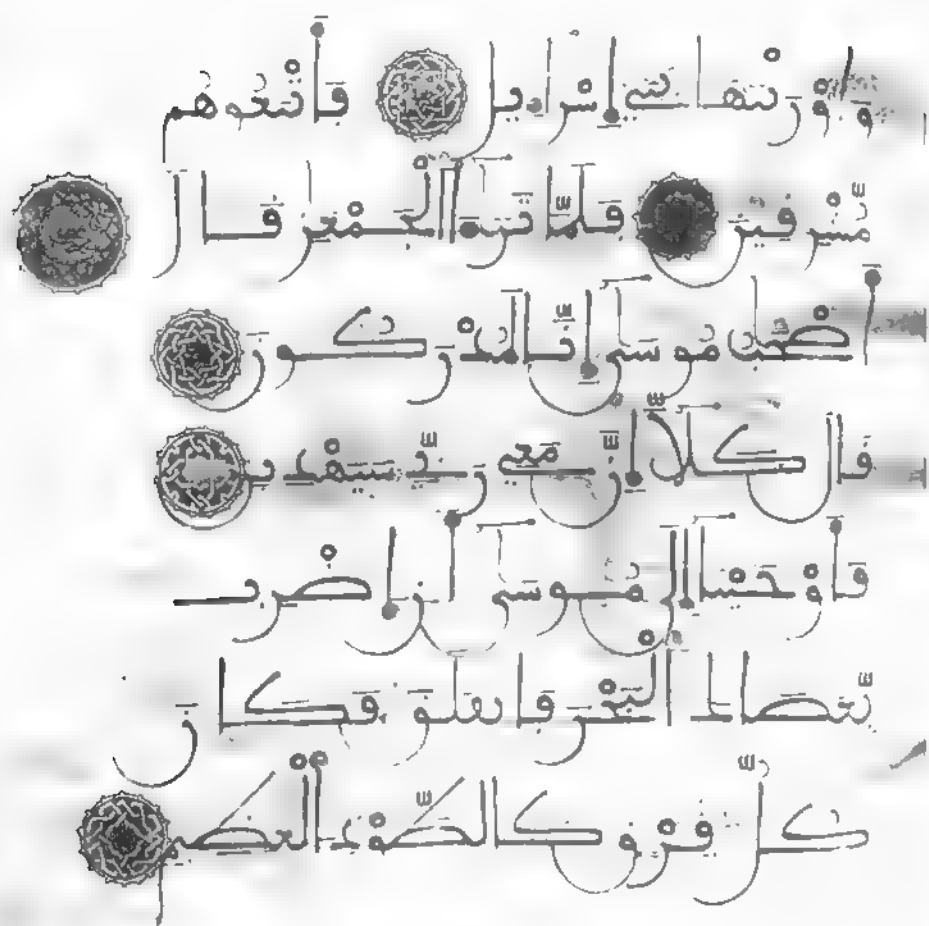 وَأَوْرَثْنَٰهَا بَنِىٓ إِسْرَٰٓءِيلَ فَأَتْبَعُوهُم
مُّشْرِقِينَ فَلَمَّا تَرَٰٓءَا ٱلْجَمْعَٰنِ قَالَ
أَصْحَٰبُ مُوسَىٰٓ إِنَّا لَمُدْرَكُونَ
قَالَ كَلَّآ إِنَّ مَعِى رَبِّى سَيَهْدِينِ
فَأَوْحَيْنَآ إِلَىٰ مُوسَىٰٓ أَنِ ٱضْرِب
بِّعَصَاكَ ٱلْبَحْرَ فَٱنفَلَقَ فَكَانَ
كُلُّ فِرْقٍ كَٱلطَّوْدِ ٱلْعَظِيمِ